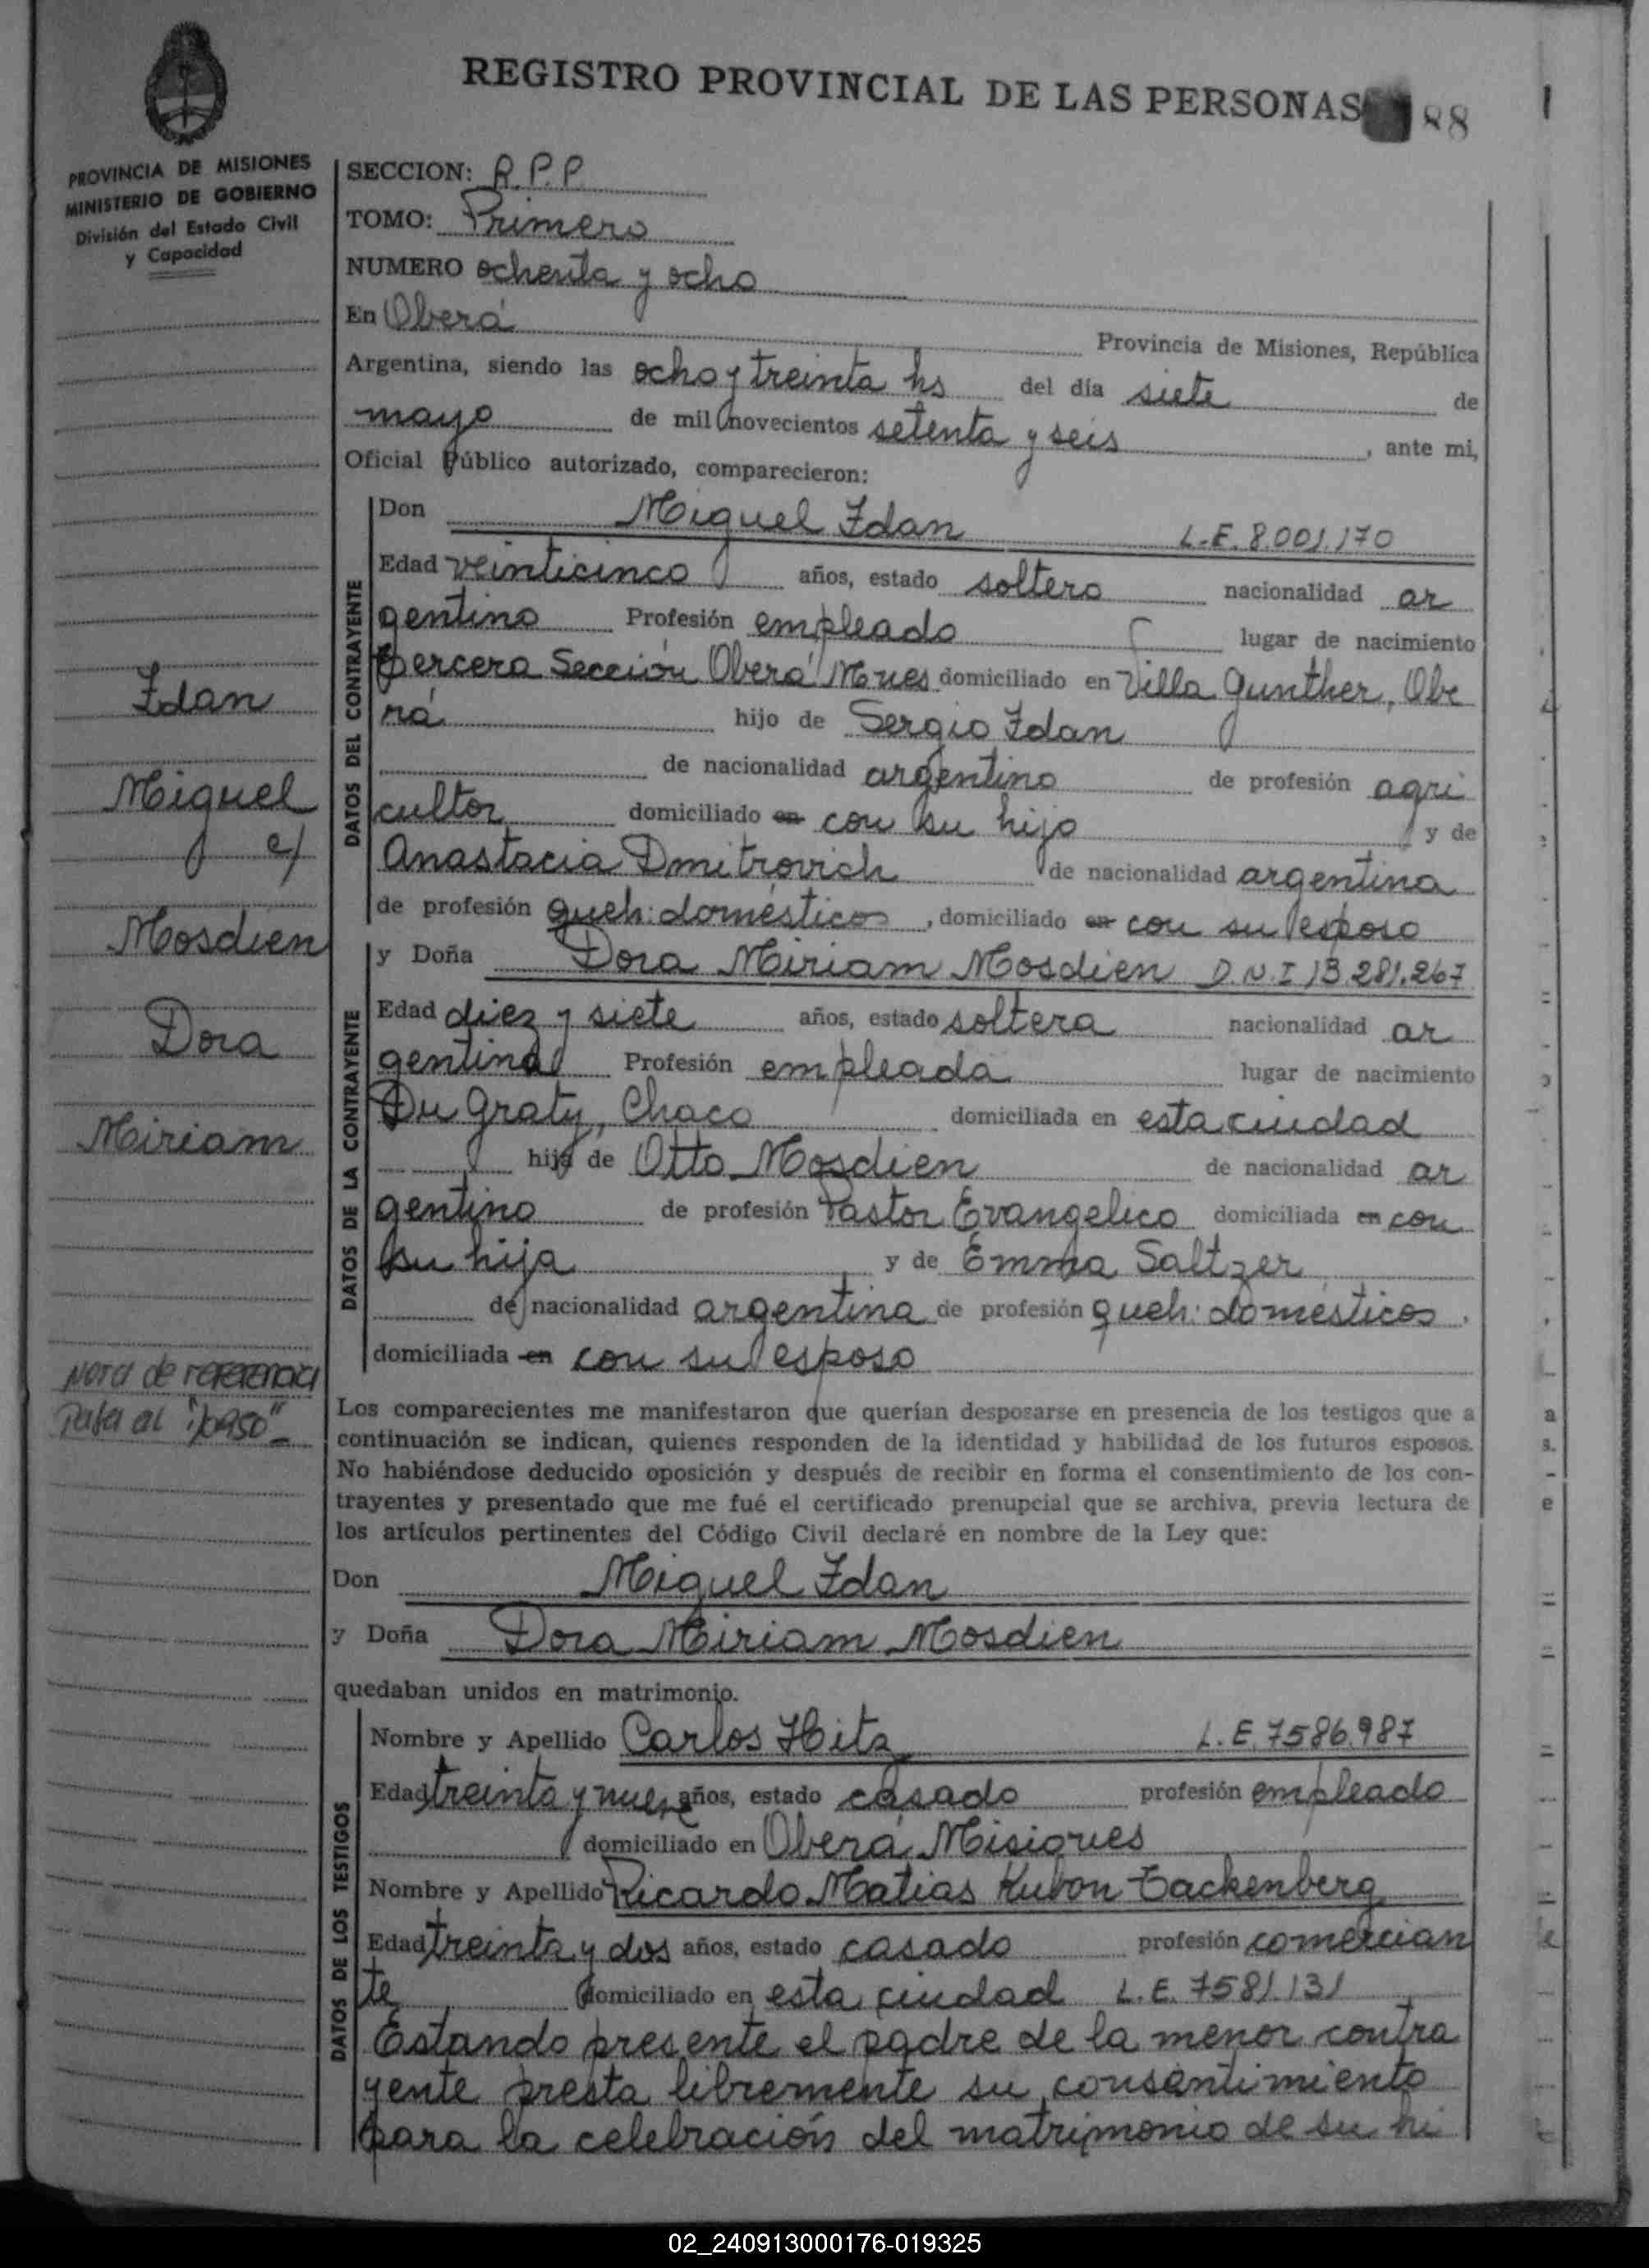 REGISTRO PROVINCIAL DE LAS PERSONAS 88
PROVINCIA DE MISIONES
MINISTERIO DE GOBIERNO
División del Estado Civil
y Capacidad
SECCION: R.P.P
TOMO: Primero
NUMERO ochenta y ocho
En Oberá
Provincia de Misiones, República
Argentina, siendo las ocho y treinta hs del día siete de
mayo de mil novecientos setenta y seis, ante mi,
Oficial Público autorizado, comparecieron:
DATOS DEL CONTRAYENTE
Don Miguel Idan L.E. 8.001.170
Edad veinticinco años, estado soltero nacionalidad ar
gentino Profesión empleado lugar de nacimiento
tercera Sección Oberá Mnes domiciliado en Villa Gunther, Obe
rá hijo de Sergio Idan
de nacionalidad argentino de profesión agri
cultor domiciliado en con su hijo y de
Anastacia Dmitrovich de nacionalidad argentina
de profesión queh: domésticos, domiciliado en con su esposo
DATOS DE LA CONTRAYENTE
y Doña Dora Miriam Mosdien D.N.I 13.281.267
Edad diez y siete años, estado soltera nacionalidad ar
gentina Profesión empleada lugar de nacimiento
Du Graty, Chaco domiciliada en esta ciudad
hija de Otto Mosdien de nacionalidad ar
gentino de profesión Pastor Evangelico domiciliada en con
su hija y de Emma Saltzer
de nacionalidad argentina de profesión queh: domésticos.
domiciliada en con su esposo
Idan
Miguel
c/
Mosdien
Dora
Miriam
Nota de referencia
Pasa al "/0950"
Los comparecientes me manifestaron que querían desposarse en presencia de los testigos que a
continuación se indican, quienes responden de la identidad y habilidad de los futuros esposos.
No habiéndose deducido oposición y después de recibir en forma el consentimiento de los con-
trayentes y presentado que me fué el certificado prenupcial que se archiva, previa lectura de
los artículos pertinentes del Código Civil declaré en nombre de la Ley que:
Don Miguel Idan
y Doña Dora Miriam Mosdien
quedaban unidos en matrimonio.
DATOS DE LOS TESTIGOS
Nombre y Apellido Carlos Hitz L.E. 7586.987
Edad treinta y nueve años, estado casado profesión empleado
domiciliado en Oberá Misiones
Nombre y Apellido Ricardo Matias Kubon Tackenberg
Edad treinta y dos años, estado casado profesión comercian
te domiciliado en esta ciudad L.E. 7581.131
Estando presente el padre de la menor contra
yente presta libremente su consentimiento
para la celebración del matrimonio de su hi
02_240913000176-019325